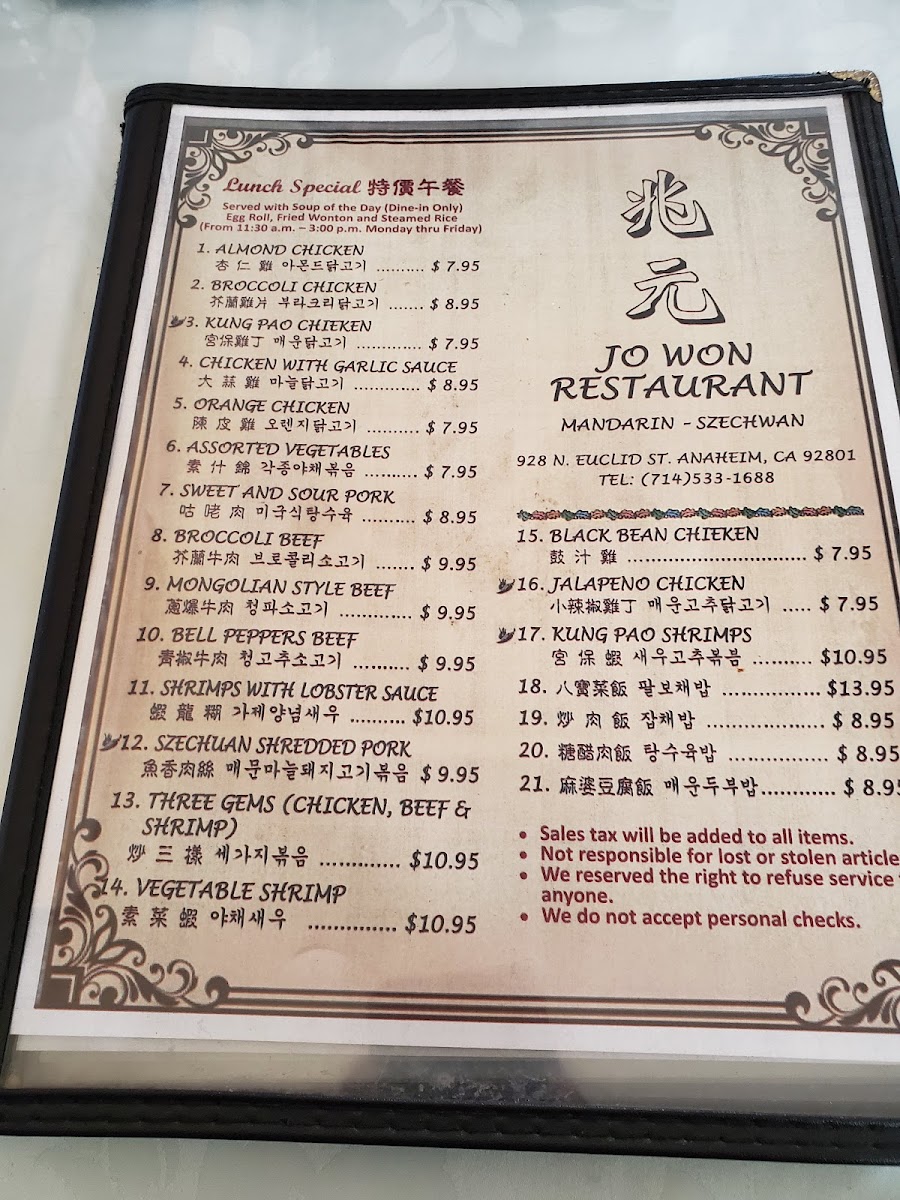 Lunch Special 特價午餐
Served with Soup of the Day (Dine-in Only)
Egg Roll, Fried Wonton and Steamed Rice
(From 11:30 a.m. – 3:00 p.m. Monday thru Friday)
1. ALMOND CHICKEN
杏仁雞 아몬드닭고기 .......... $ 7.95
2. BROCCOLI CHICKEN
芥蘭雞片 부라크리닭고기 ....... $ 8.95
3. KUNG PAO CHIEKEN
宮保雞丁 매운닭고기 ............. $ 7.95
4. CHICKEN WITH GARLIC SAUCE
大蒜雞 마늘닭고기 ............. $ 8.95
5. ORANGE CHICKEN
陳皮雞 오렌지닭고기 .......... $ 7.95
6. ASSORTED VEGETABLES
素什錦 각종야채볶음 .......... $ 7.95
7. SWEET AND SOUR PORK
咕咾肉 미국식탕수육 .......... $ 8.95
8. BROCCOLI BEEF
芥蘭牛肉 브로콜리소고기 ....... $ 9.95
9. MONGOLIAN STYLE BEEF
蔥爆牛肉 청파소고기 ............. $ 9.95
10. BELL PEPPERS BEEF
青椒牛肉 청고추소고기 .......... $ 9.95
11. SHRIMPS WITH LOBSTER SAUCE
蝦龍糊 가제양념새우 .......... $10.95
12. SZECHUAN SHREDDED PORK
魚香肉絲 매문마늘돼지고기볶음 $ 9.95
13. THREE GEMS (CHICKEN, BEEF &
SHRIMP)
炒三樣 세가지볶음 ............. $10.95
14. VEGETABLE SHRIMP
素菜蝦 야채새우 .............. $10.95
兆
元
JO WON
RESTAURANT
MANDARIN - SZECHWAN
928 N. EUCLID ST. ANAHEIM, CA 92801
TEL: (714)533-1688
15. BLACK BEAN CHIEKEN
鼓汁雞 ............................. $ 7.95
16. JALAPENO CHICKEN
小辣椒雞丁 매운고추닭고기 ..... $ 7.95
17. KUNG PAO SHRIMPS
宮保蝦 새우고추볶븜 .......... $10.95
18. 八寶菜飯 팔보채밥 ................ $13.95
19. 炒肉飯 잡채밥 ................... $ 8.95
20. 糖醋肉飯 탕수육밥 ................ $ 8.95
21. 麻婆豆腐飯 매운두부밥............. $ 8.95
• Sales tax will be added to all items.
• Not responsible for lost or stolen article
• We reserved the right to refuse service
anyone.
• We do not accept personal checks.